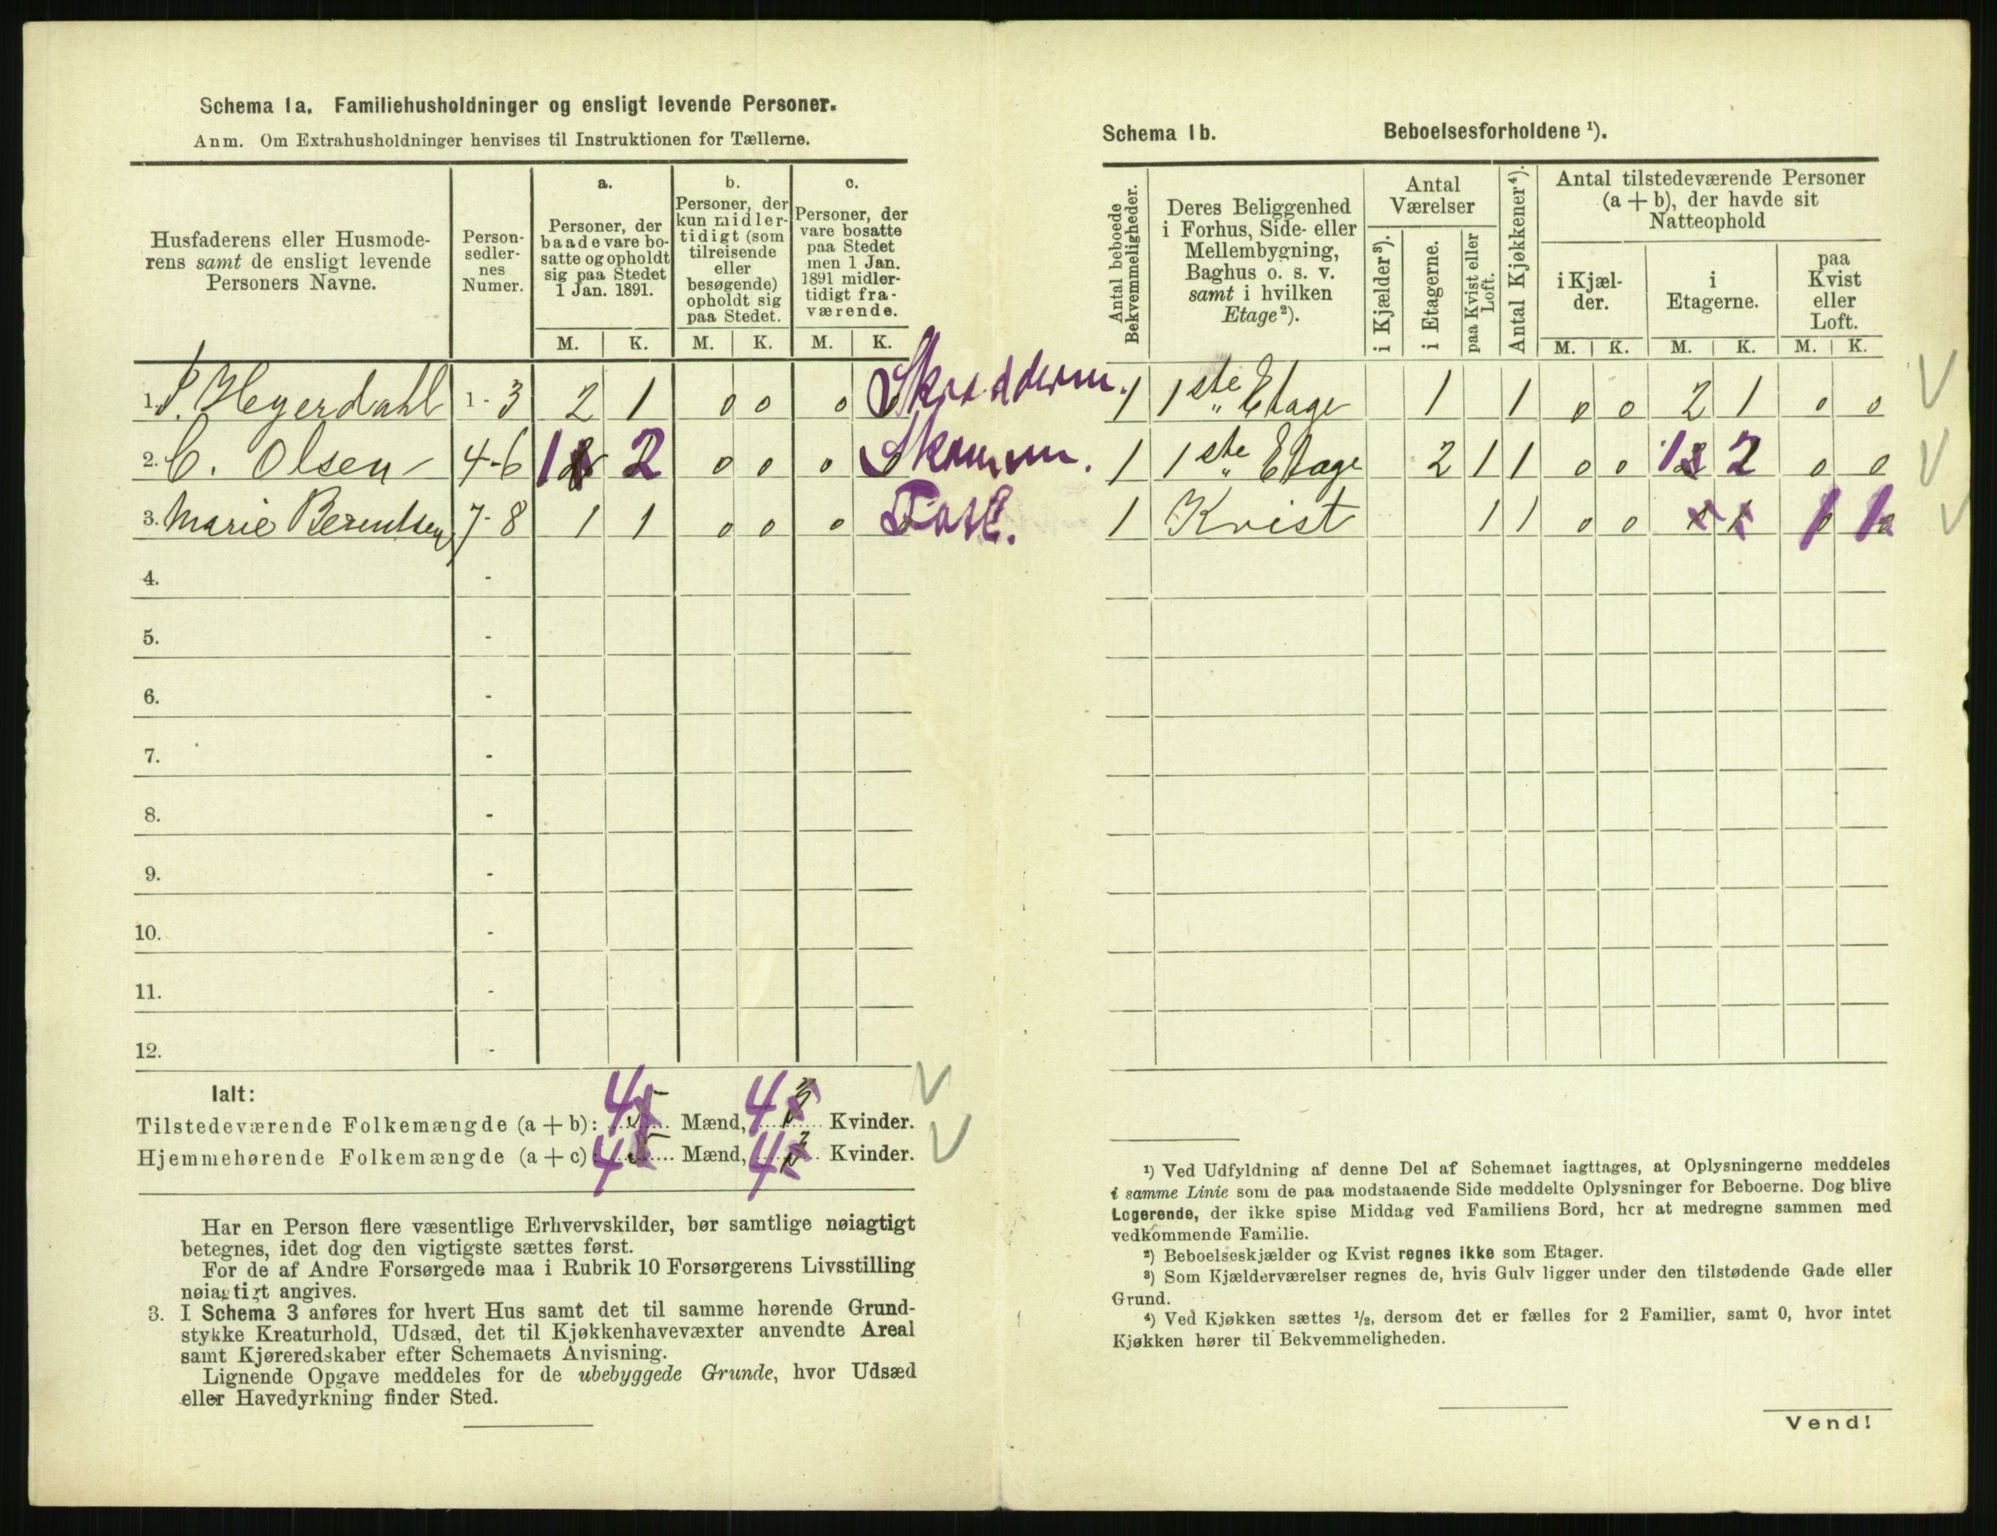 Schema 1a. Familiehusholdninger og ensligt levende Personer.
Anm. Om Extrahusholdninger henvises til Instruktionen for Tællerne.
Husfaderens eller Husmode-
rens samt de ensligt levende
Personers Navne.
Person-
sedler-
nes
Numer.
a.
Personer, der
baade vare bo-
satte og opholdt
sig paa Stedet
1 Jan. 1891.
b.
Personer, der
kun midler-
tidigt (som
tilreisende
eller
besøgende)
opholdt sig
paa Stedet.
c.
Personer, der
vare bosatte
paa Stedet
men 1 Jan.
1891 midler-
tidigt fra-
værende.
M. K. M. K. M. K.
1. P. Heyerdahl 1-3 2 1 0 0 0 0 Skrædderm.
2. C. Olsen 4-6 1 2 0 0 0 0 Skomm.
3. Marie Berentsen 7-8 1 1 0 0 0
4. -
5. -
6. -
7. -
8. -
9. -
10. -
11. -
12. -
Ialt:
Tilstedeværende Folkemængde (a + b): 4 5 Mænd, 4 3 Kvinder.
Hjemmehørende Folkemængde (a + c): 4 5 Mænd, 4 3 Kvinder.
Har en Person flere væsentlige Erhvervskilder, bør samtlige nøiagtigt
betegnes, idet dog den vigtigste sættes først.
For de af Andre Forsørgede maa i Rubrik 10 Forsørgerens Livsstilling
nøiagtigt angives.
3. I Schema 3 anføres for hvert Hus samt det til samme hørende Grund-
stykke Kreaturhold, Udsæd, det til Kjøkkenhavevæxter anvendte Areal
samt Kjøreredskaber efter Schemaets Anvisning.
Lignende Opgave meddeles for de ubebyggede Grunde, hvor Udsæd
eller Havedyrkning finder Sted.
Schema 1b. Beboelsesforholdene ¹).
Antal beboede
Bekvemmeligheder.
Deres Beliggenhed
i Forhus, Side- eller
Mellembygning,
Baghus o. s. v.
samt i hvilken
Etage²).
Antal
Værelser
i Kjælder³).
i Etagerne.
paa Kvist eller
Loft.
Antal Kjøkkener⁴).
Antal tilstedeværende Personer
(a + b), der havde sit
Natteophold
i Kjæl-
der.
i
Etagerne.
paa
Kvist
eller
Loft.
M. K. M. K. M. K.
1 1ste Etage 1 1 0 0 2 1 0 0
1 1ste Etage 2 1 1 0 0 1 2 0 0
1 Kvist 1 1 0 0 1 1
¹) Ved Udfyldning af denne Del af Schemaet iagttages, at Oplysningerne meddeles
i samme Linie som de paa modstaaende Side meddelte Oplysninger for Beboerne. Dog blive
Logerende, der ikke spise Middag ved Familiens Bord, her at medregne sammen med
vedkommende Familie.
²) Beboelseskjælder og Kvist regnes ikke som Etager.
³) Som Kjælderværelser regnes de, hvis Gulv ligger under den tilstødende Gade eller
Grund.
⁴) Ved Kjøkken sættes ½, dersom det er fælles for 2 Familier, samt 0, hvor intet
Kjøkken hører til Bekvemmeligheden.
Vend!